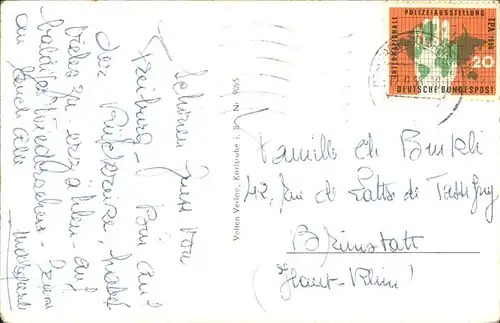 Schönen Gruss von
Freiburg - Bin auf
der Rückreise, habe
vieles zu erzählen - auf
baldiges Wiedersehen -
an Euch Alle
Velten Verlag, Karlsruhe i. B.
Nr.
INTERNATIONALE
POLIZEIAUSSTELLUNG
IPA 1956
20
DEUTSCHE BUNDESPOST
Famille Ch
42, Rue de Lattre de Tassigny
Brunstatt
Haut-Rhin!